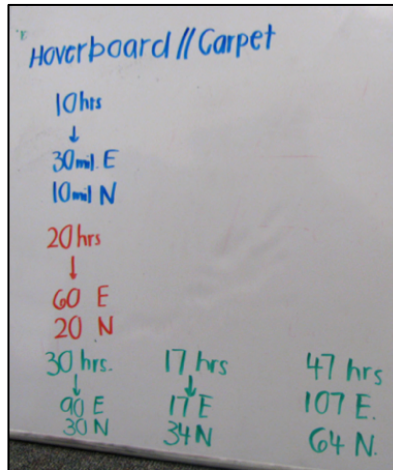 Hoverboard // Carpet
10hrs
↓
30mil. E
10mil N
20hrs
↓
60 E
20 N
30 hrs.
↓
90 E
30 N
17 hrs
↓
17 E
34 N
47 hrs
107 E.
64 N.